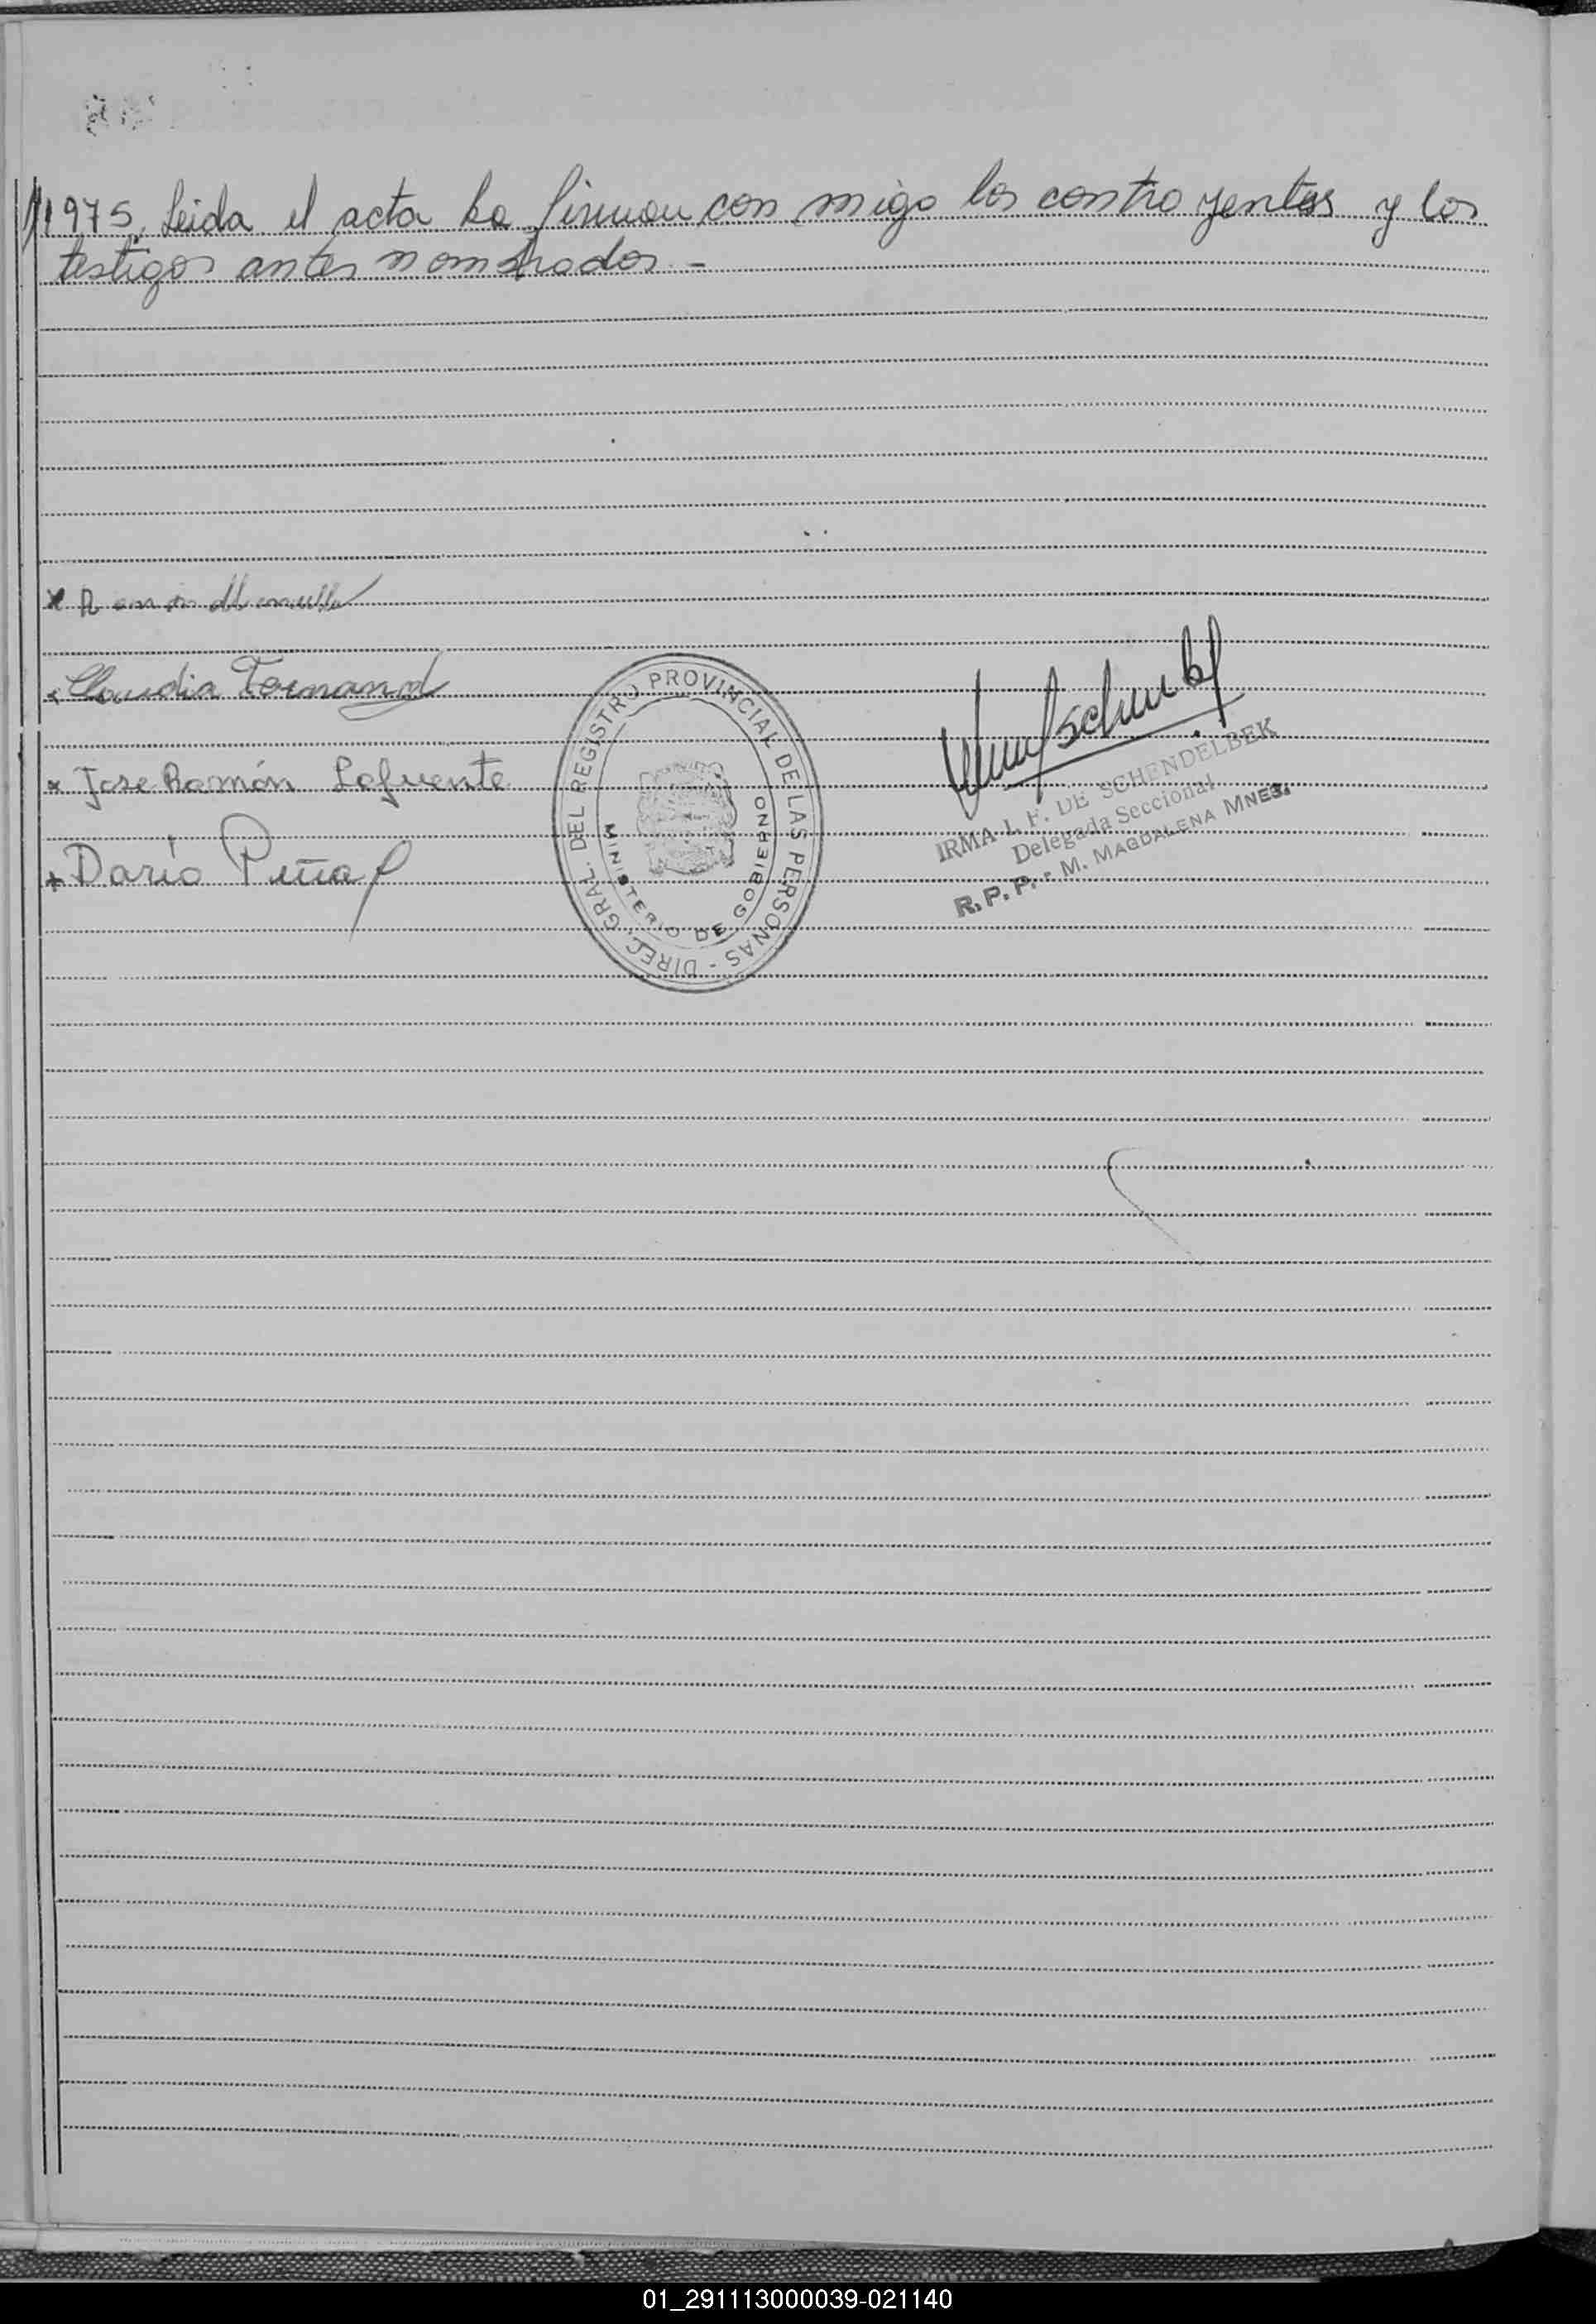 //1975, Leida el acta la firman con migo los contrayentes y los
testigos antes nombrados -
x Ramon
x Claudia Fernand
x Jose Ramón Lafuente
x Darío Piña
DIREC. GRAL. DEL REGISTRO PROVINCIAL DE LAS PERSONAS -
MINISTERIO DE GOBIERNO
IRMA I. F. DE SCHENDELBEK
Delegada Seccional
R. P. P. - M. MAGDALENA MNES.
01_291113000039-021140